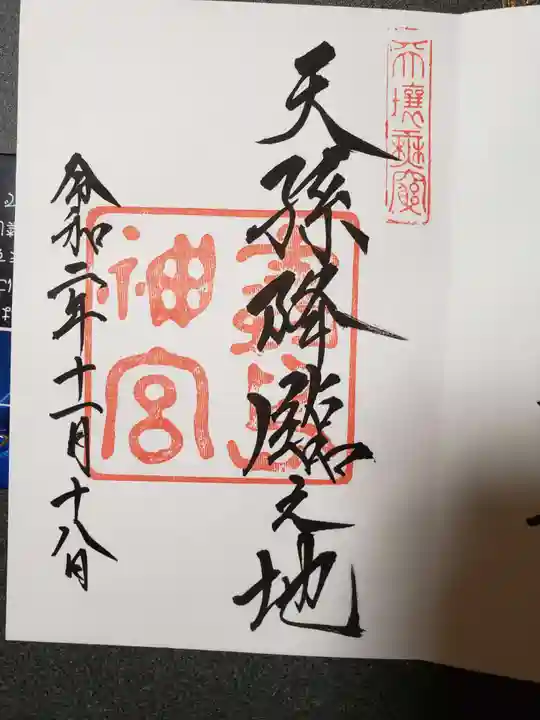 天孫降臨之地
神宮
令和二年十一月十八日